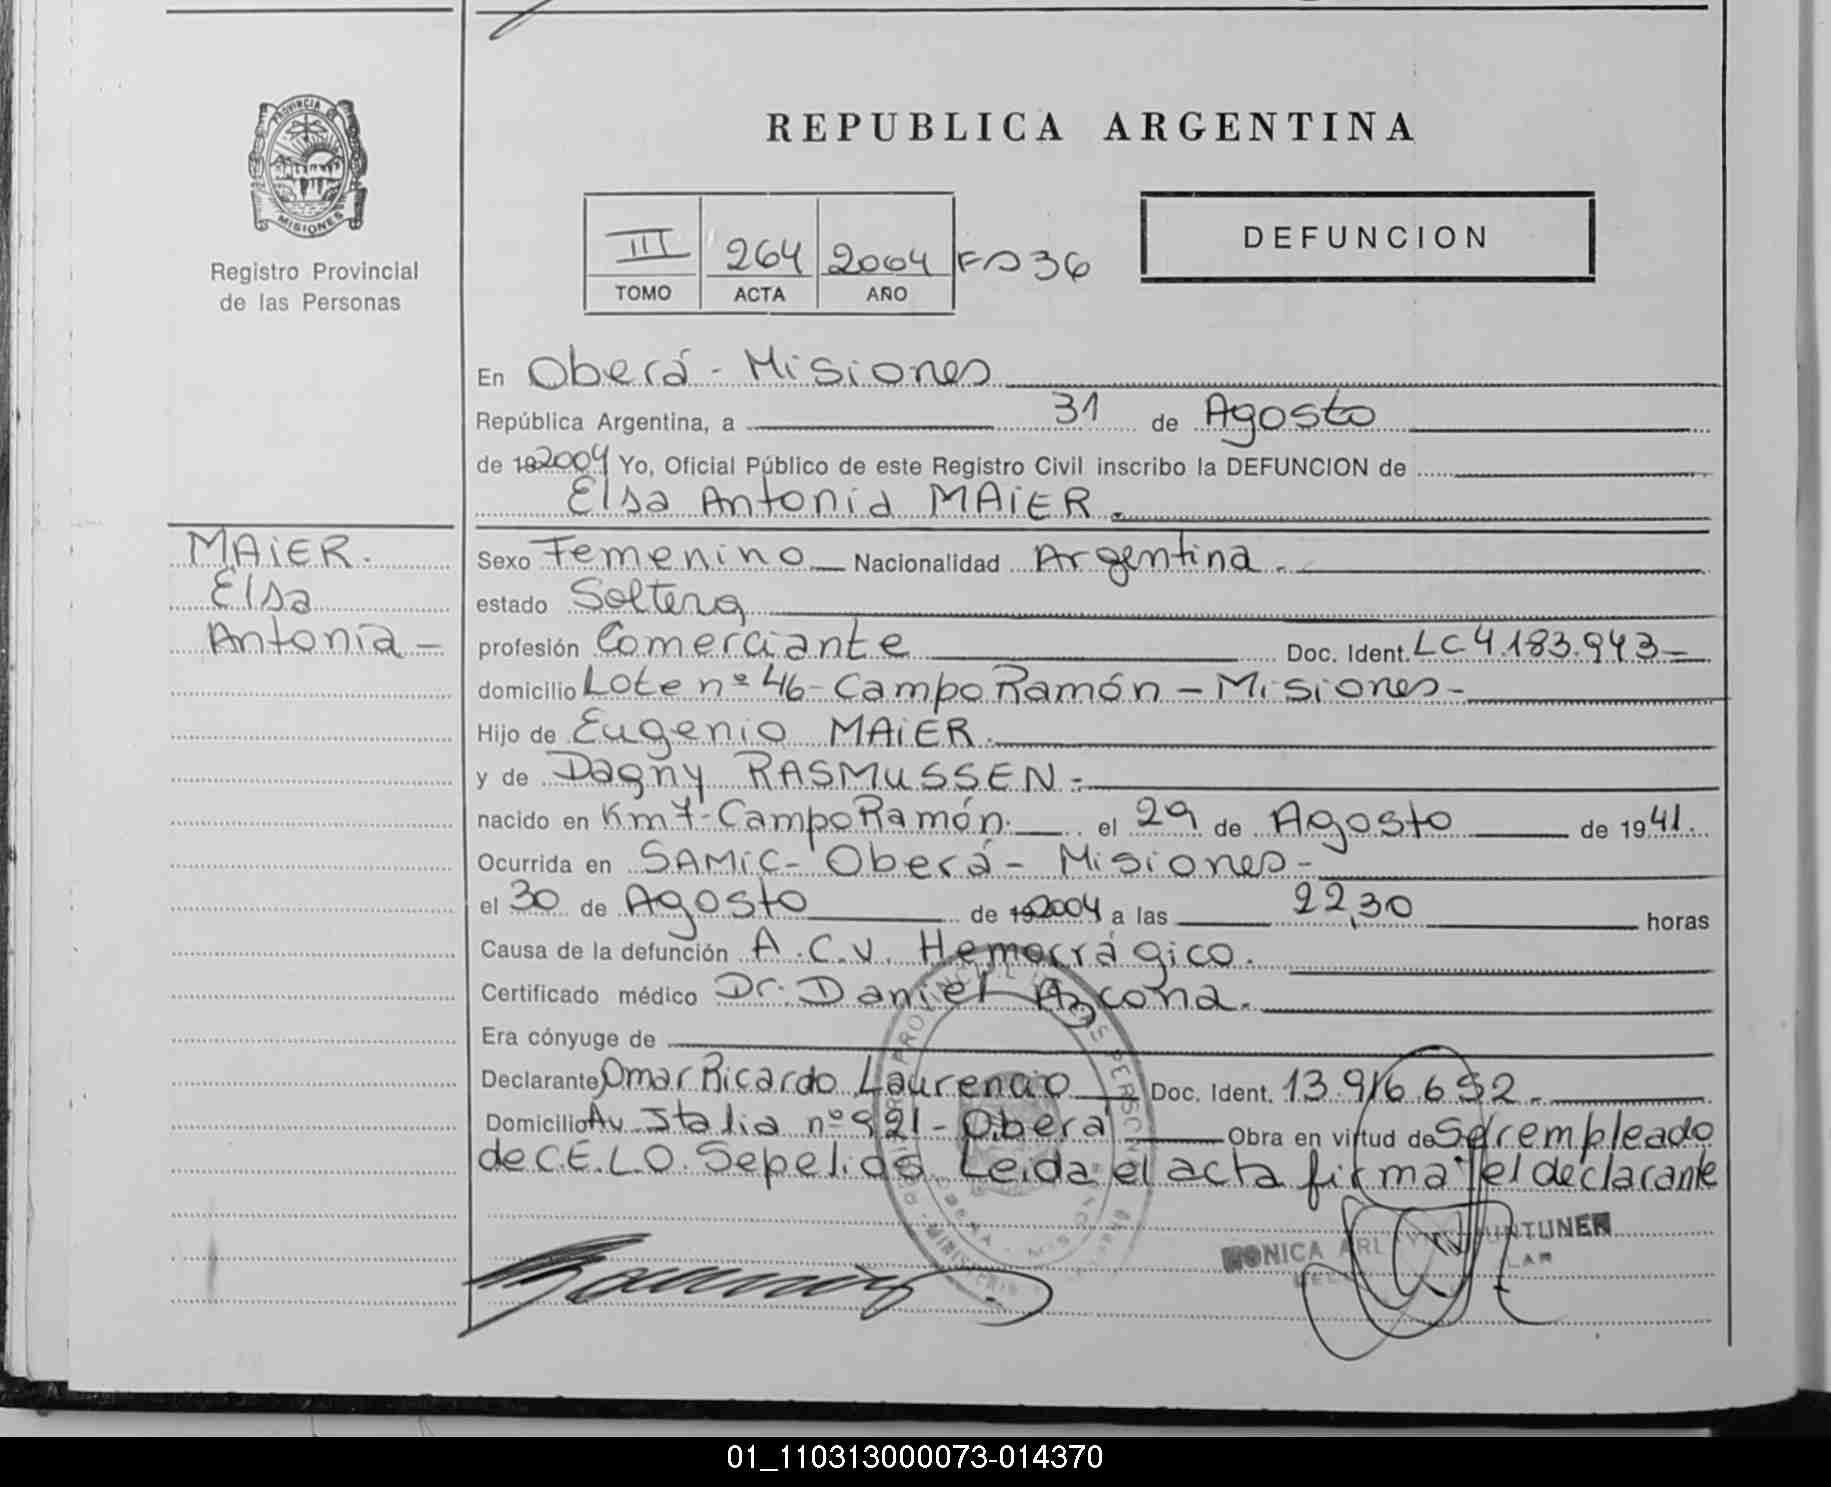 PROVINCIA DE
MISIONES
Registro Provincial
de las Personas
REPUBLICA ARGENTINA
III 264 2004 Fº 36
TOMO ACTA AÑO
DEFUNCION
En Oberá - Misiones
República Argentina, a 31 de Agosto
de 192004 Yo, Oficial Público de este Registro Civil inscribo la DEFUNCION de
Elsa Antonia MAiER.
MAiER.
Elsa
Antonia -
Sexo Femenino Nacionalidad Argentina.
estado Soltera
profesión Comerciante Doc. Ident. LC 4.183.943-
domicilio Lote nº 46 - Campo Ramón - Misiones -
Hijo de Eugenio MAiER.
y de Dagny RASMUSSEN.
nacido en Km 7 - Campo Ramón. el 29 de Agosto de 1941.
Ocurrida en SAMiC - Oberá - Misiones -
el 30 de Agosto de 192004 a las 22,30 horas
Causa de la defunción A.C.V. Hemorrágico.
Certificado médico Dr. Daniel Azcona.
Era cónyuge de
Declarante Omar Ricardo Laurencio Doc. Ident. 13.916.652.
Domicilio Av. Italia nº 921 - Oberá Obra en virtud de Ser empleado
de C.E.L.O. Sepelios. Leida el acta firma el declarante
MONICA
01_110313000073-014370